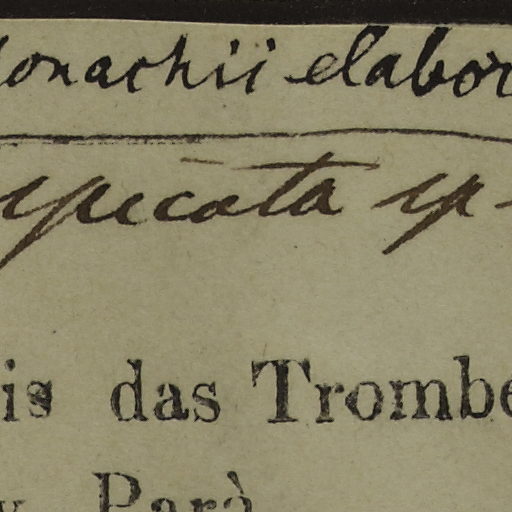 onachii elabor
spicata sp
is das Trombe
Parà